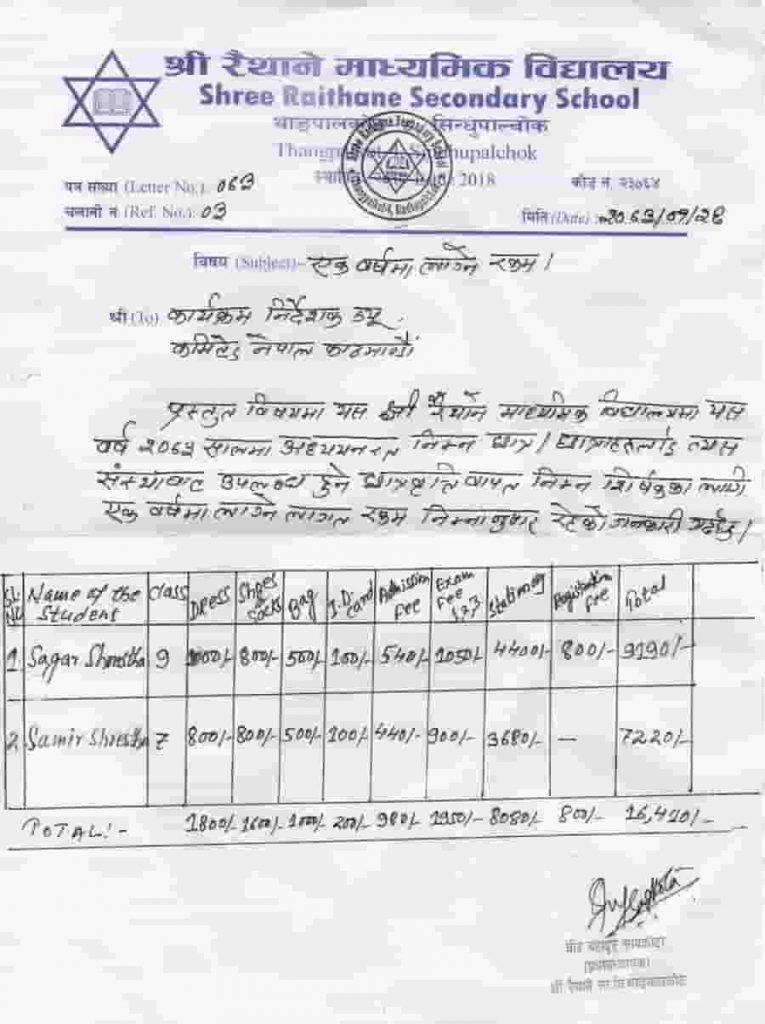 श्री रैथाने माध्यमिक विद्यालय
Shree Raithane Secondary School
सिन्धुपालचोक
2018
पत्र संख्या (Letter No.): 063
कोड नं. २३०६४
चलानी नं (Ref. No.): 03
मिति (Date)
विषय (Subject):- एक वर्षमा लाग्ने रकम।
श्री (To) कार्यक्रम निर्देशक ज्यू
कमिटेड नेपाल काठमाडौं
प्रस्तुत विषयमा यस श्री रैथाने माध्यमिक विद्यालयमा यस
वर्ष २०६३ सालमा अध्ययनरत निम्न छात्र/छात्राहरुलाई त्यस
संस्थाबाट उपलब्ध हुने छात्रवृत्ति वापत निम्न शिर्षकका लागी
एक वर्षमा लाग्ने लागत रकम निम्नानुसार रहेको जानकारी गर्दछु।
SL NO Name of the Student Class Dress Shoes & Socks Bag I.D. Card Admission Fee Exam Fee 1,2,3 Stationary Registration Fee Total
1 Sagar Shrestha 9 1000/- 800/- 500/- 100/- 540/- 1050/- 4400/- 800/- 9190/-
2 Samir Shrestha 7 800/- 800/- 500/- 100/- 440/- 900/- 3680/- — 7220/-
TOTAL:- 1800/- 1600/- 1000/- 200/- 980/- 1950/- 8080/- 800/- 16,410/-